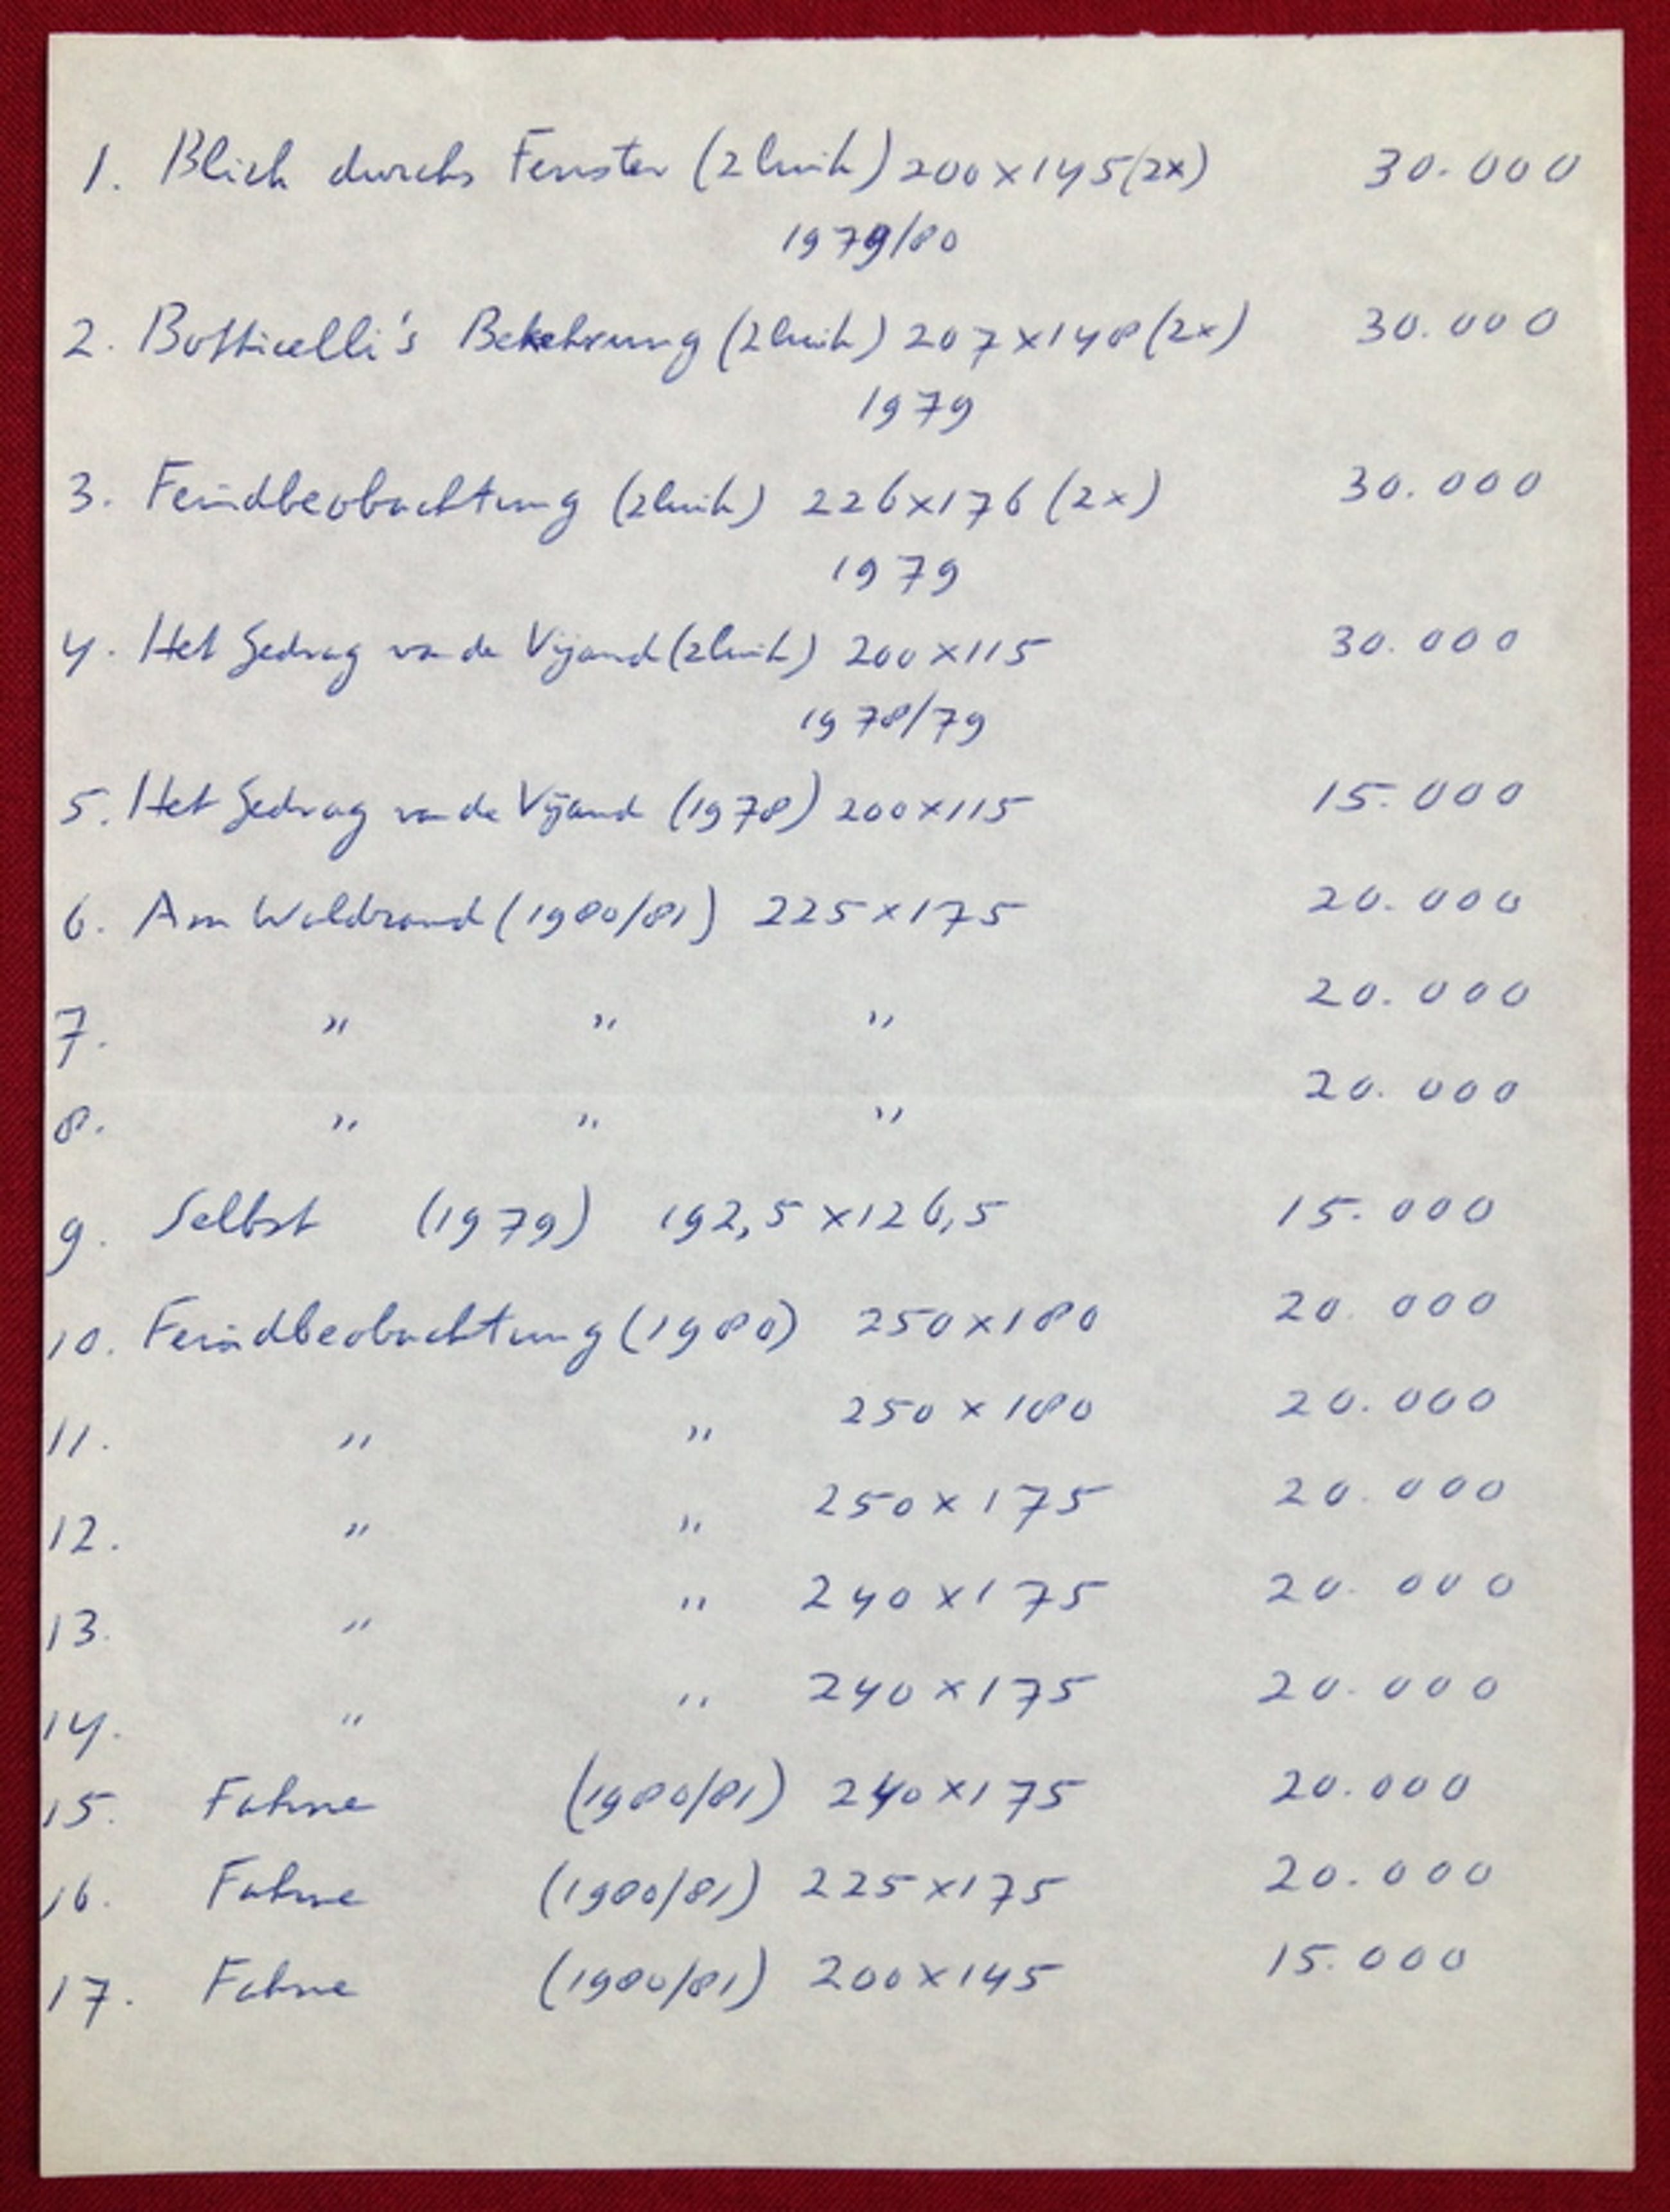 1. Blick durchs Fenster (2 luik) 200 x 145 (2x) 30.000
1979/80
2. Botticelli's Bekehrung (2 luik) 207 x 148 (2x) 30.000
1979
3. Feindbeobachtung (2 luik) 226 x 176 (2x) 30.000
1979
4. Het Gedrag van de Vijand (2 luik) 200 x 115 30.000
1978/79
5. Het Gedrag van de Vijand (1978) 200 x 115 15.000
6. Am Waldrand (1980/81) 225 x 175 20.000
7. " " " 20.000
8. " " " 20.000
9. Selbst (1979) 192,5 x 126,5 15.000
10. Feindbeobachtung (1980) 250 x 180 20.000
11. " " 250 x 180 20.000
12. " " 250 x 175 20.000
13. " " 240 x 175 20.000
14. " " 240 x 175 20.000
15. Fahne (1980/81) 240 x 175 20.000
16. Fahne (1980/81) 225 x 175 20.000
17. Fahne (1980/81) 200 x 145 15.000